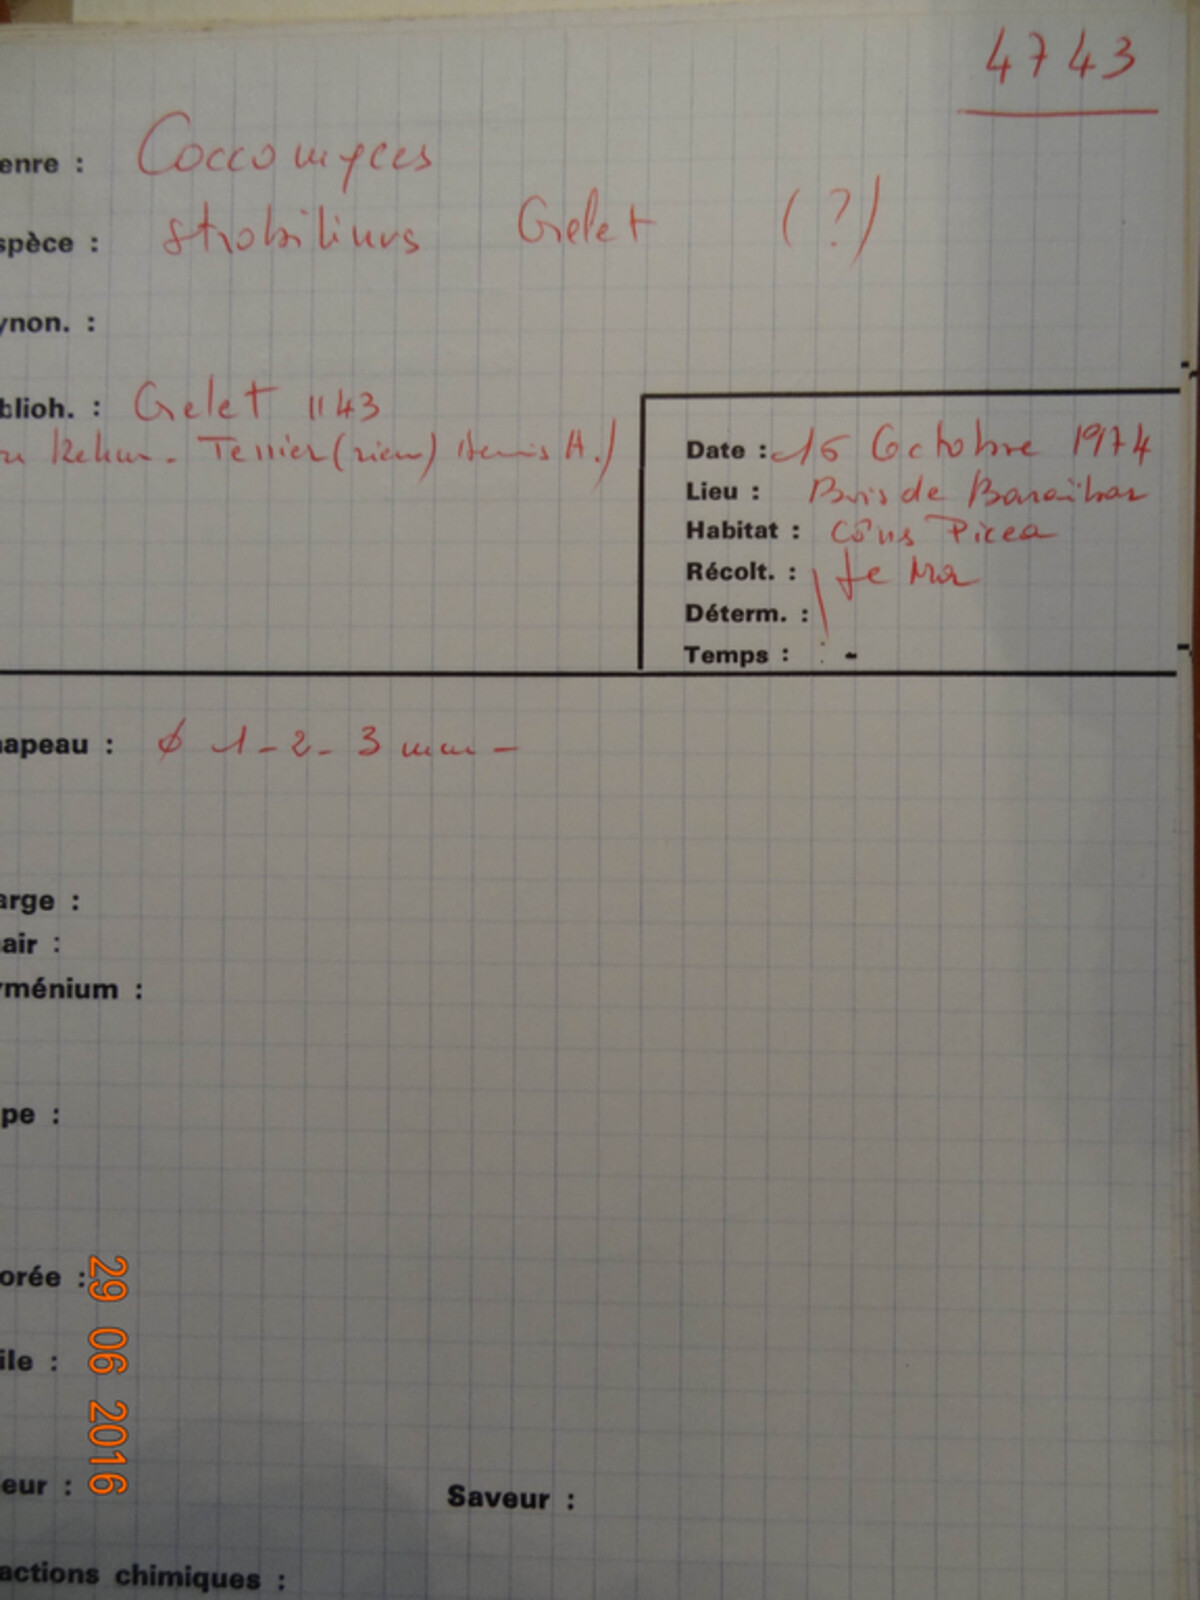 4743
enre : Coccomyces
spèce : strobilinus Grelet (?)
ynon. :
blioh. : Grelet 1143
Rehm - Terrier (rien) Dennis A.)
Date : 16 Octobre 1974
Lieu : Bois de
Habitat : cônes Picea
Récolt. :
Déterm. :
Temps : -
hapeau : ø 1-2-3 mm -
arge :
air :
yménium :
pe :
orée :
ile :
eur :
Saveur :
actions chimiques :
29 06 2016